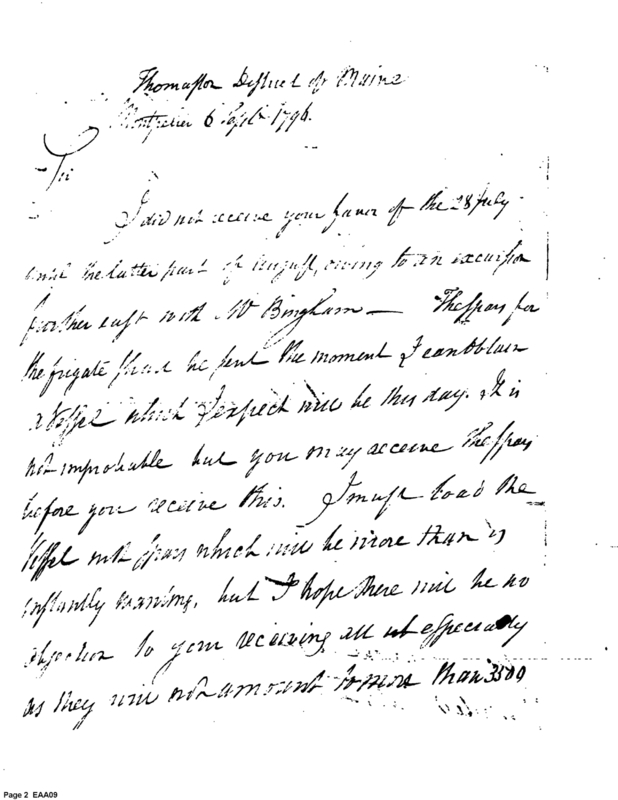 Thomaston District of Maine
Montpelier 6 Septr 1796.
Sir
I did not receive your favor of the 28 July
until the latter part of August, owing to an excursion
further east with Mr Bingham — The spars for
the frigate shall be sent the moment I can obtain
a Vessel which I expect will be this day. It is
not improbable but you may receive the spars
before you receive this. I must load the
Vessel with spars which will be more than is
instantly wanting, but I hope there will be no
objection to your receiving all especially
as they will not amount to more than 3500
Page 2 EAA09